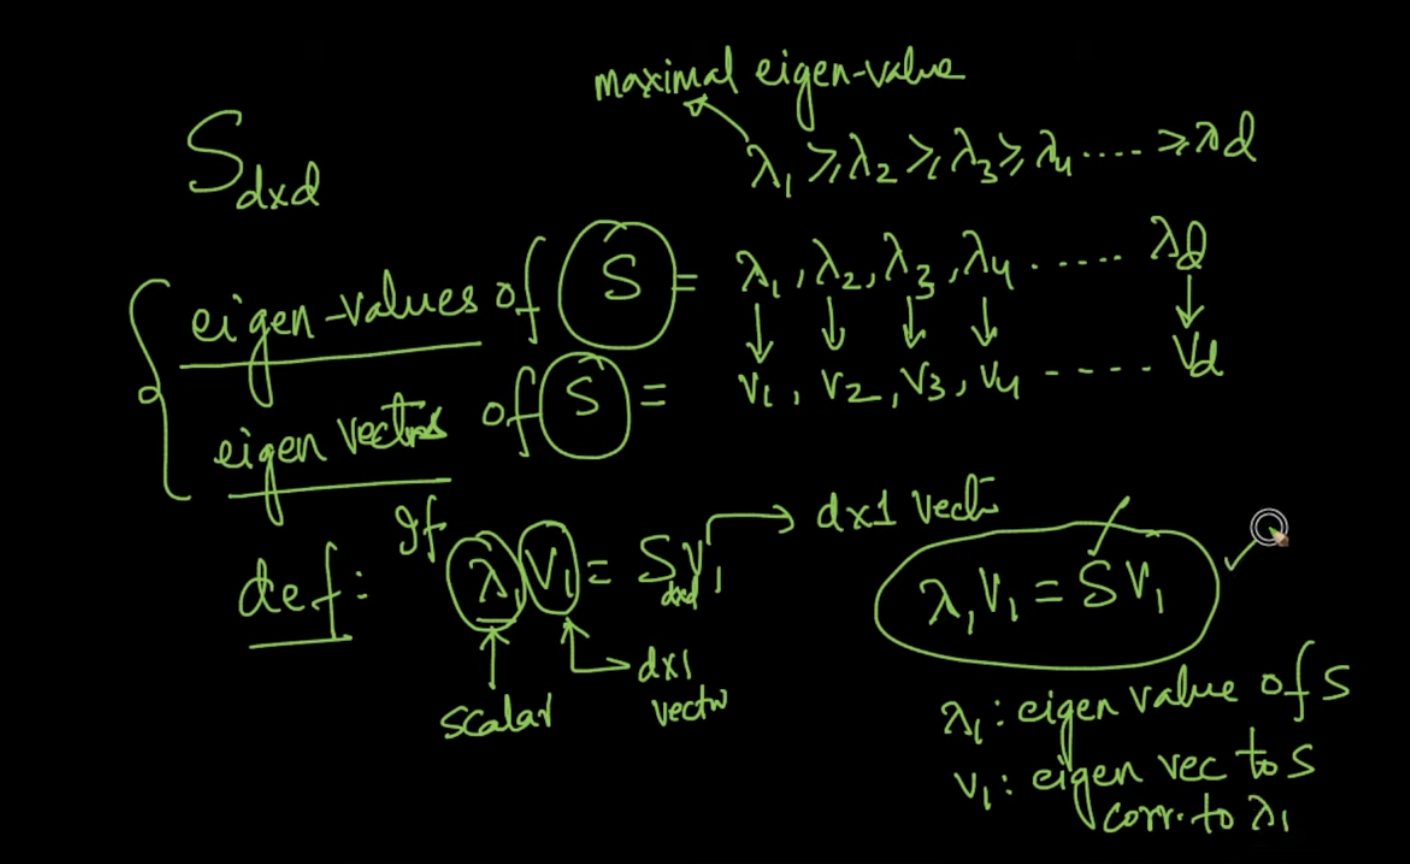 maximal eigen-value
λ₁ ≥ λ₂ ≥ λ₃ ≥ λ₄ ..... ≥ λd
S dxd
eigen-values of S = λ₁, λ₂, λ₃, λ₄ ...... λd
eigen vectors of S = V₁, V₂, V₃, V₄ ----- Vd
def: If λ₁ V₁ = S dxd V₁ → dx1 vect
scalar
dx1
vector
λ₁V₁ = SV₁
λ₁: eigen value of S
V₁: eigen vec to S
corr. to λ₁